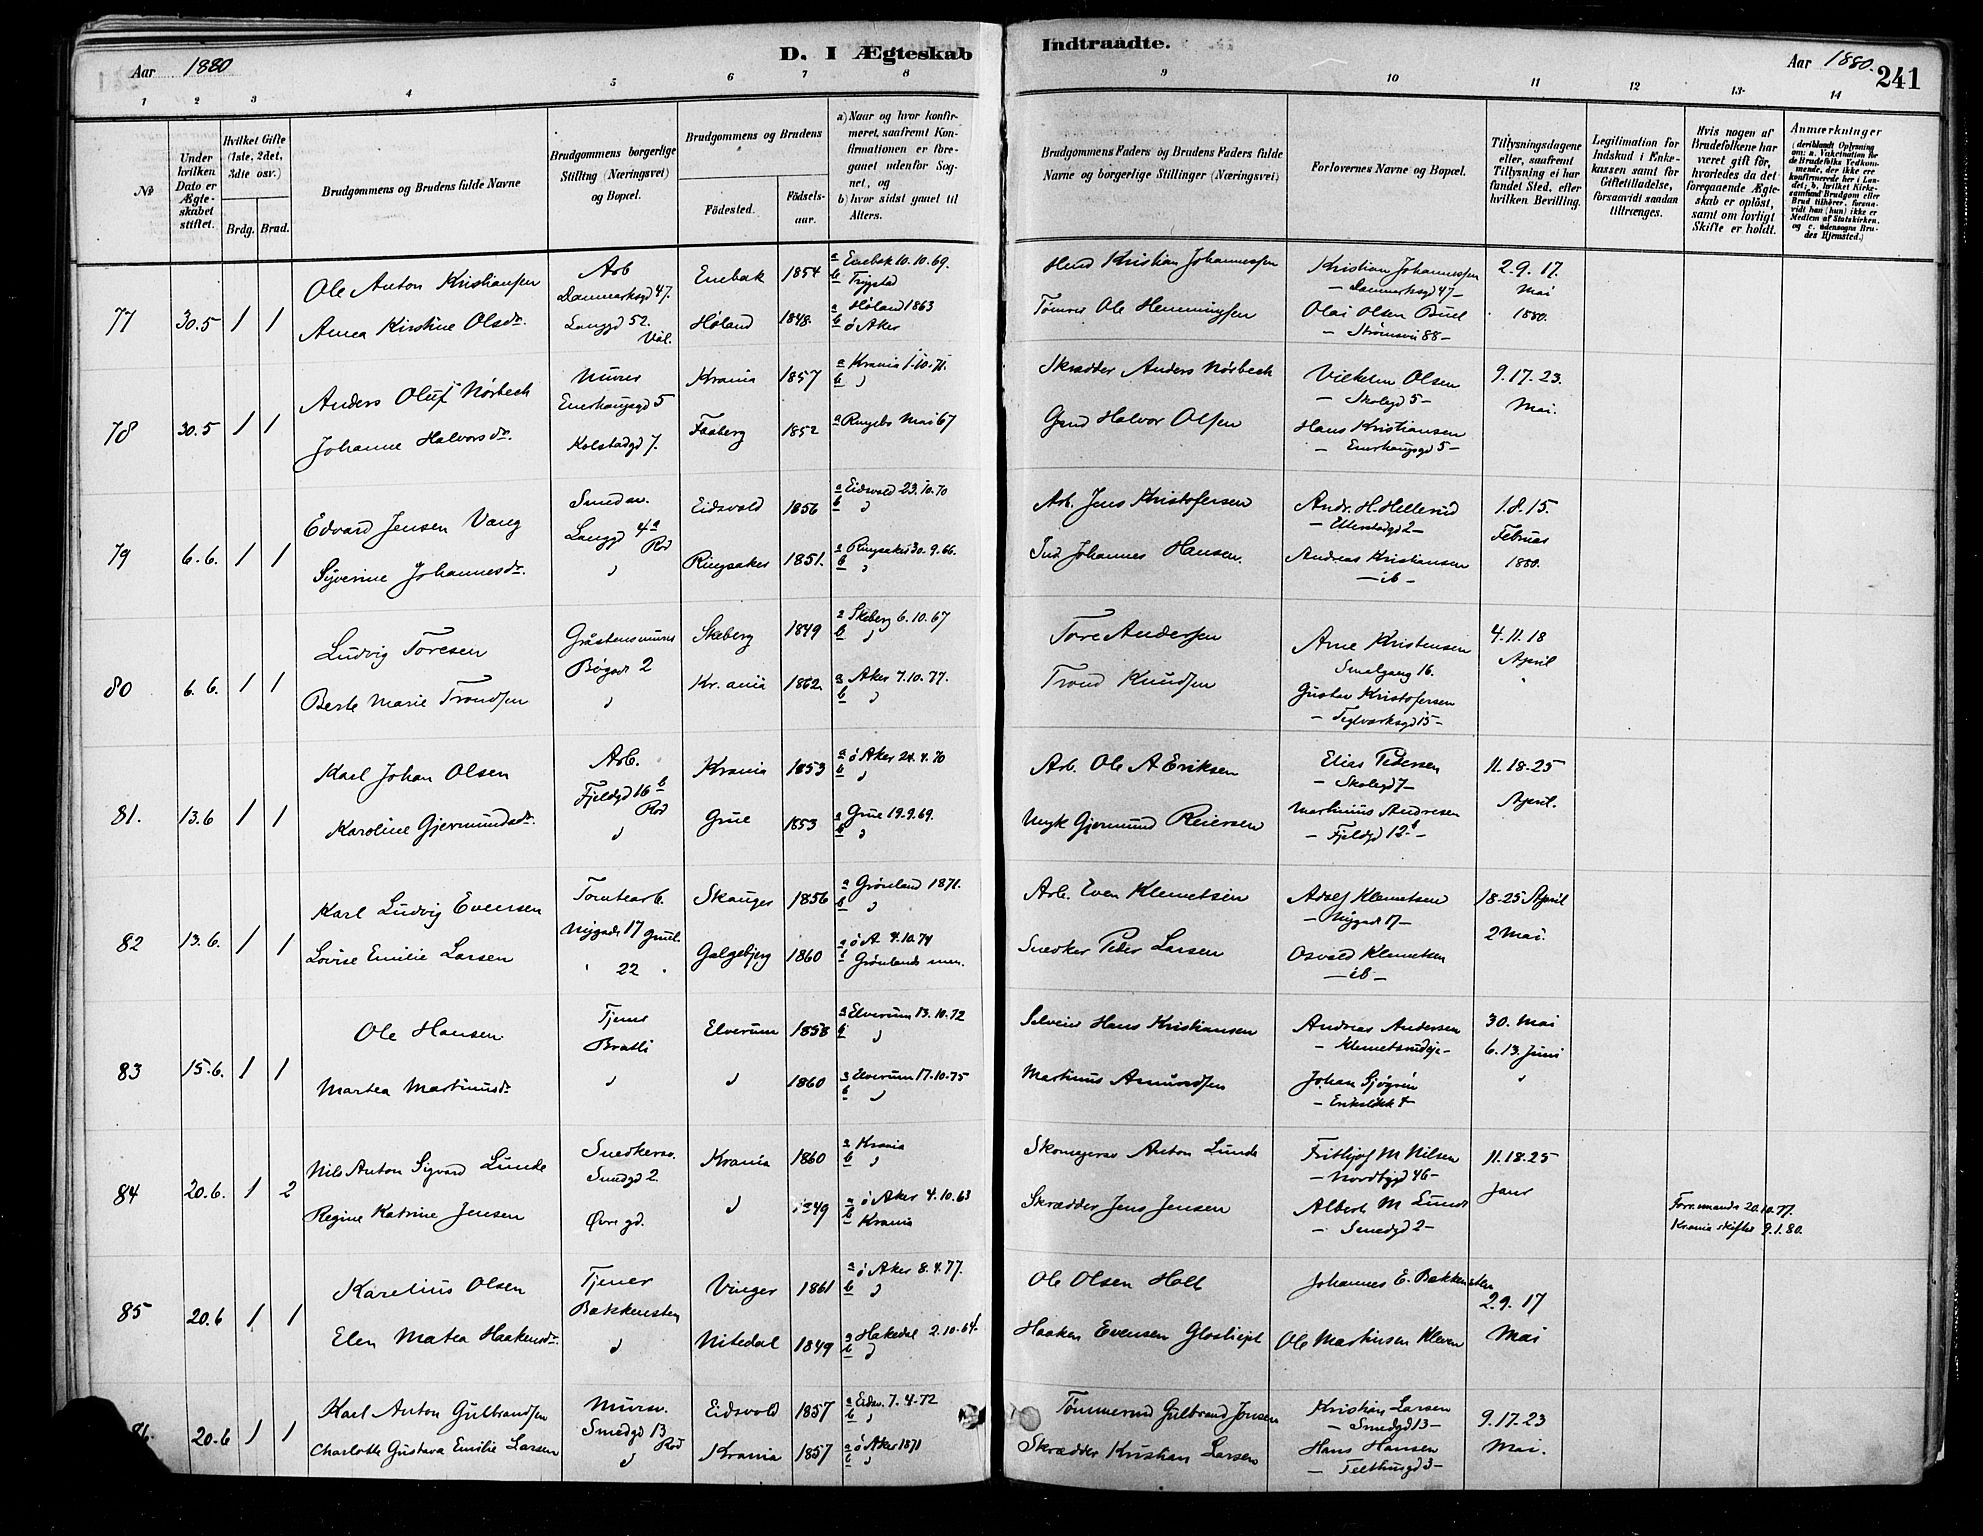 Aar 1880
D. I Ægteskab
Indtraadte.
Aar 1880.
241
1 2 3 4 5 6 7 8 9 10 11 12 13 14
No
Under hvilken Dato er Ægteskabet stiftet.
Hvilket Gifte (1ste, 2det, 3die osv.)
Brdg. Brud.
Brudgommens og Brudens fulde Navne
Brudgommens borgerlige Stilling (Næringsvei) og Bopæl.
Brudgommens og Brudens
Fødested.
Fødselsaar.
a) Naar og hvor konfirmeret, saafremt Konfirmationen er foregaaet udenfor Sognet, og
b) hvor sidst gaaet til Alters.
Brudgommens Faders og Brudens Faders fulde Navne og borgerlige Stillinger (Næringsvei)
Forlovernes Navne og Bopæl.
Tillysningsdagene eller, saafremt Tillysning ei har fundet Sted, efter hvilken Bevilling.
Legitimation for Indskud i Enkekassen samt for Giftetilladelse, forsaavidt saadan tiltrænges.
Hvis nogen af Brudefolkene har været gift før, hvorledes da det foregaaende Ægteskab er opløst, samt om lovligt Skifte er holdt.
Anmærkninger (deriblandt Oplysning om: a. Vakcination for de Brudefolks Vedkommende, der ikke ere konfirmerede her i Landet; b. hvilket Kirkesamfund Brudgom eller Brud tilhører, forsaavidt han (hun) ikke er Medlem af Statskirken, og c. udensogns Brudes Hjemsted.)
77 30.5 1 1
Ole Anton Kristiansen
Arb Danmarksgd 47.
Enebak 1854
a Enebak 10.10.69.
b Trygstad
Kristian Johannessen
Kristian Johannessen
– Danmarksgd 47 –
2.9.17. Mai 1880.
Anna Kirstine Olsdr.
Langgd 52. Vål.
Høland 1848.
a Høland 1863
b ö Aker
Tømrer Ole Hemmingsen
Olai Olsen
– Strømsvei 88 –
78 30.5 1 1
Anders Oluf Nörbech
Murer Enerhaugsgd 5
Krania 1857
a Krania 1.10.71.
b "
Skrædder Anders Nörbech
Vilhelm Olsen
– Skolegd 5 –
9.17.23. Mai.
Johanne Halvorsdr.
Kolstadgd 7.
Faaberg 1852
a Ringebo Mai 67
Gmd Halvor Olsen
Hans Kristiansen
– Enerhaugsgd 5 –
79 6.6. 1 1
Edvard Jensen Vang
Smedsv. Langgd 4a Rod
Eidsvold 1856
a Eidsvold 23.10.70
b "
Arb. Jens Kristofersen
Andr. H. Hellerud
– Etterstadgd 2 –
1.8.15. Februar 1880.
Syverine Johannesdr.
"
Ringsaker 1851.
a Ringsaker 30.9.66.
b "
Ind Johannes Hansen.
Andreas Kristiansen
– ib –
80 6.6. 1 1
Ludvig Toresen
Gråstensmurer Bøgade 2
Skeberg 1849
a Skeberg 6.10.67
b "
Tore Andersen
Arne Kristensen
Smalgang 16.
4.11.18 April
Berte Marie Trondsen
"
Kr.ania 1862.
a Aker 7.10.77.
b "
Trond Knudsen
Gustav Kristofersen
– Teglverksgd 15 –
81. 13.6 1 1
Karl Johan Olsen
Arb. Fjeldgd 16b Rod
Krania 1853
a ö Aker 24.4.70
b "
Arb. Ole A Eriksen
Elias Pedersen
– Skolegd 7 –
11.18.25 April.
Karoline Gjermundsdr.
"
Grue 1853
a Grue 19.9.69.
b "
Gjermund Reiersen
Martinius Andresen
– Fjeldgd 12 –
82 13.6. 1 1
Karl Ludvig Evensen
Tomtearb. Nygade 17
Skauger 1856
a Grønland 1871.
b "
Arb. Even Klemetsen
Adolf Klemetsen
– Nygade 17 –
18.25 April 2 Mai.
Lovise Emilie Larsen
" 22 "
Galgebjerg 1860
a ö A 4.10.74
b Grønlands men.
Snedker Peder Larsen
Osvald Klemetsen
– ib –
83 15.6. 1 1
Ole Hansen
Tjener Bratli
Elverum 1858
a Elverum 13.10.72
b "
Selveier Hans Kristiansen
Andreas Andersen
– Klemetsrudeje –
30. Mai 6.13. Juni
Martea Martinusdr.
"
" 1860
a Elverum 17.10.75
b "
Martinus Amundsen
Johan Sjögren
– Eriksløkk 4 –
84 20.6. 1 2
Nils Anton Sigvard Lunde
Snedkersv. Smedgd 2.
Krania 1860
a Krania
b "
Skomagersv Anton Lunde
Frithjof M Nilsen
– Nordbygd 46 –
11.18.25 Janr
Regine Katrine Jensen
Øvregd.
" 1849
a ö Aker 4.10.63
b Krania
Skrædder Jens Jensen
Albert M Lunde
– Smedgd 2 –
Formands 20.10.77.
Krania skifter 9.1.80.
85 20.6 1 1
Karelius Olsen
Tjener Bakkensten
Vinger 1861
a ö Aker 8.4.77.
b "
Ole Olsen Holt
Johannes E. Bakkensten
2.9.17 Mai
Elen Matea Haakensdr.
"
Nitedal 1849
a Hakedal 2.10.64.
b "
Haaken Evensen
Ole Martinsen Kleven
86. 20.6 1 1
Karl Anton Gulbrandsen
Mursv. Smedgd 13 Rod
Eidsvold 1857
a Eidsv. 7.4.72
b "
Tømmermd Gulbrand Jensen
Kristian Larsen
– Smedgd 13 –
9.17.23 Mai.
Charlotte Gustava Emilie Larsen
"
Krania 1857
a ö Aker 1871
b "
Skrædder Kristian Larsen
Hans Hansen
– Telthusgd 3 –